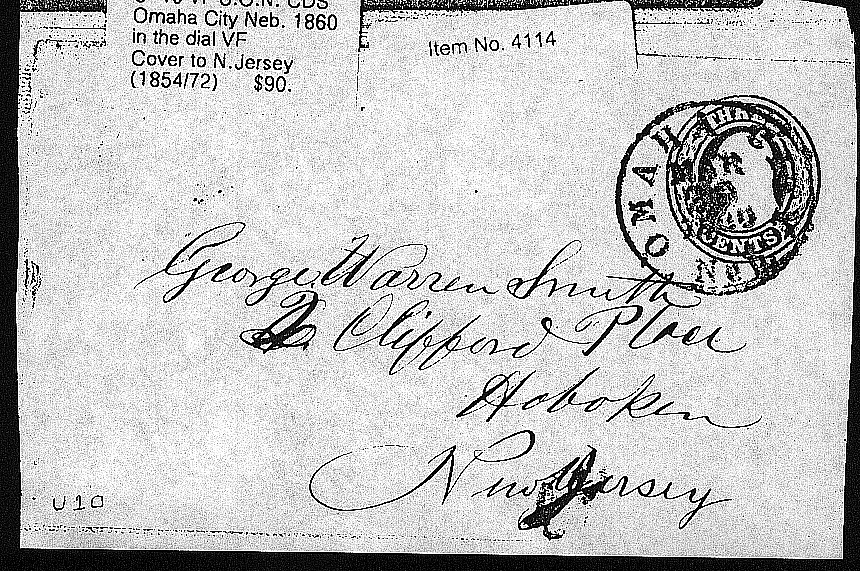 Omaha City Neb. 1860
in the dial VF
Cover to N.Jersey
(1854/72) $90.
Item No. 4114
THREE
CENTS
OMAH
George Warren Smith
2. Clifford Place
Hoboken
New Jersey
U10